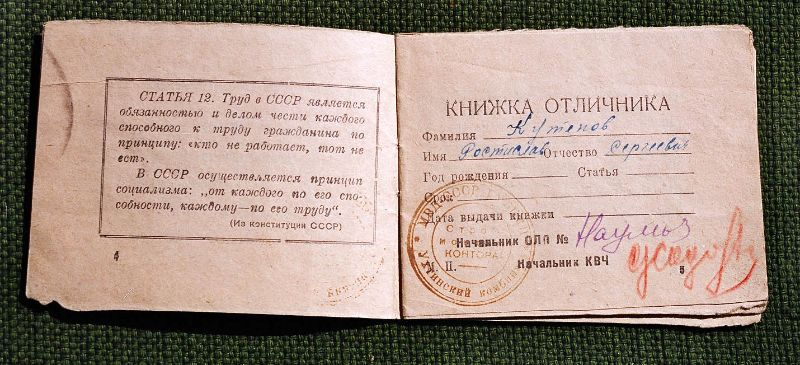 СТАТЬЯ 12. Труд в СССР является
обязанностью и делом чести каждого
способного к труду гражданина по
принципу: «кто не работает, тот не
ест».
В СССР осуществляется принцип
социализма: „от каждого по его спо-
собности, каждому—по его труду“.
(Из конституции СССР)
4
КНИЖКА ОТЛИЧНИКА
Фамилия Кутепов
Имя Ростислав Отчество Сергеевич
Год рождения Статья
Срок
Дата выдачи книжки
Начальник ОЛП №
М. П. Начальник КВЧ
5
КОНТОРА